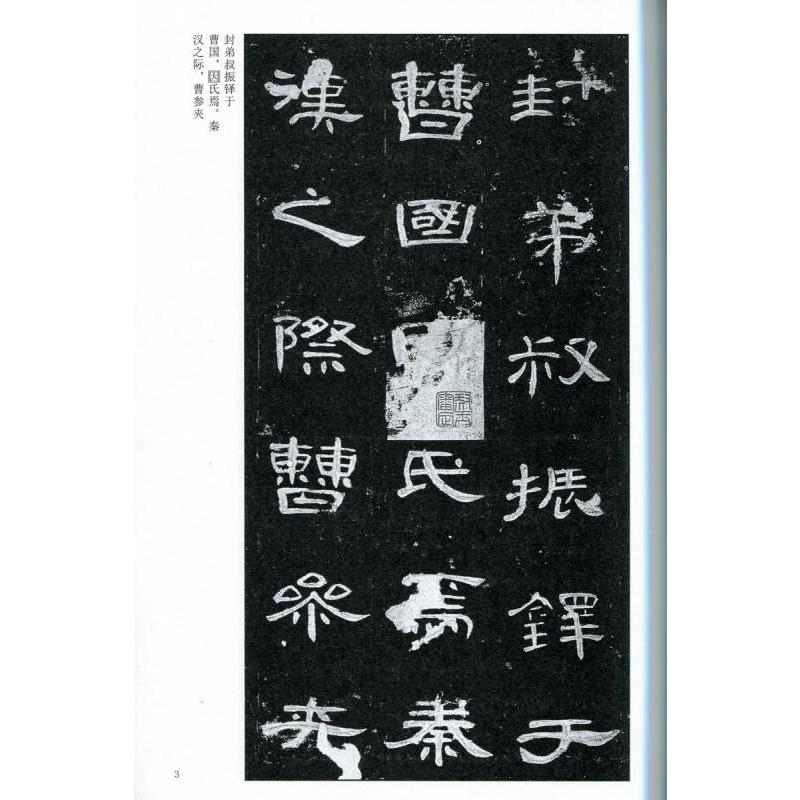 封弟叔振鐸于
曹國氏焉秦
漢之際曹參夾
封弟叔振铎于
曹国，因氏焉。秦
汉之际，曹参夹
3